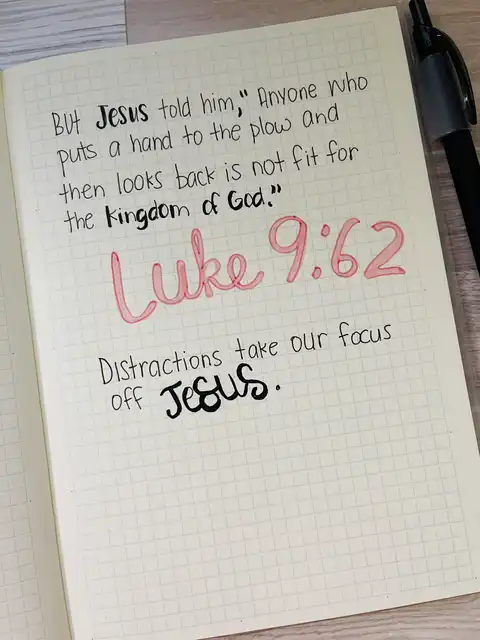 But Jesus told him," Anyone who
puts a hand to the plow and
then looks back is not fit for
the kingdom of God."
Luke 9:62
Distractions take our focus
off Jesus.